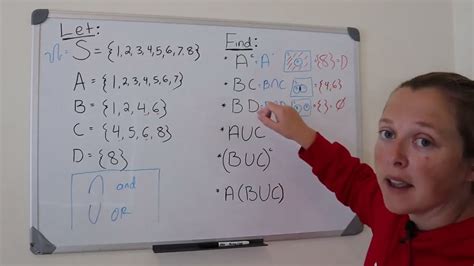 Let:
S = {1,2,3,4,5,6,7,8}
A = {1,2,3,4,5,6,7}
B = {1,2,4,6}
C = {4,5,6,8}
D = {8}
and
OR
Find:
• Aᶜ = A' = {8} = D
• BC = B∩C = {4,6}
• BD = {} = Ø
• AUC
• (BUC)ᶜ
• A(BUC)